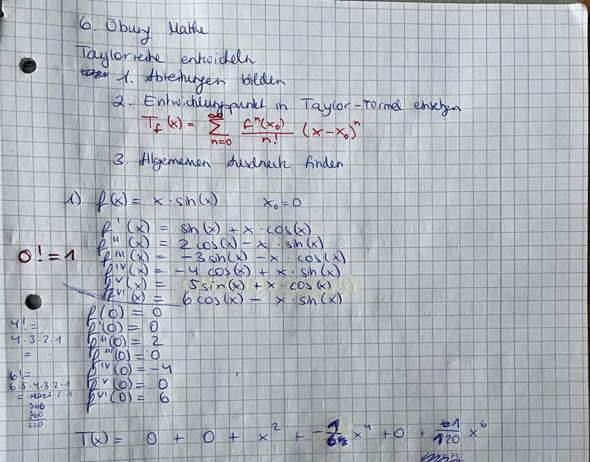 6. Übung Mathe
Taylorreihe entwickeln
1. Ableitungen bilden
2. Entwicklungspunkt in Taylor-Formel einsetzen
T_f(x) = ∞∑n=0 fⁿ(x₀)/n! (x-x₀)ⁿ
3. Allgemeinen Ausdruck finden
1) f(x) = x·sin(x) x₀=0
f'(x) = sin(x) + x·cos(x)
f''(x) = 2cos(x) - x·sin(x)
0! = 1
f'''(x) = -3sin(x) - x·cos(x)
f^IV(x) = -4cos(x) + x·sin(x)
f^V(x) = 5sin(x) + x·cos(x)
f^VI(x) = 6cos(x) - x·sin(x)
f(0) = 0
f'(0) = 0
f''(0) = 2
f'''(0) = 0
f^IV(0) = -4
f^V(0) = 0
f^VI(0) = 6
4! =
4·3·2·1
=
6! =
6·5·4·3·2·1
=
360
360
T(x) = 0 + 0 + x² + - 1/6 x⁴ + 0 + 1/120 x⁶